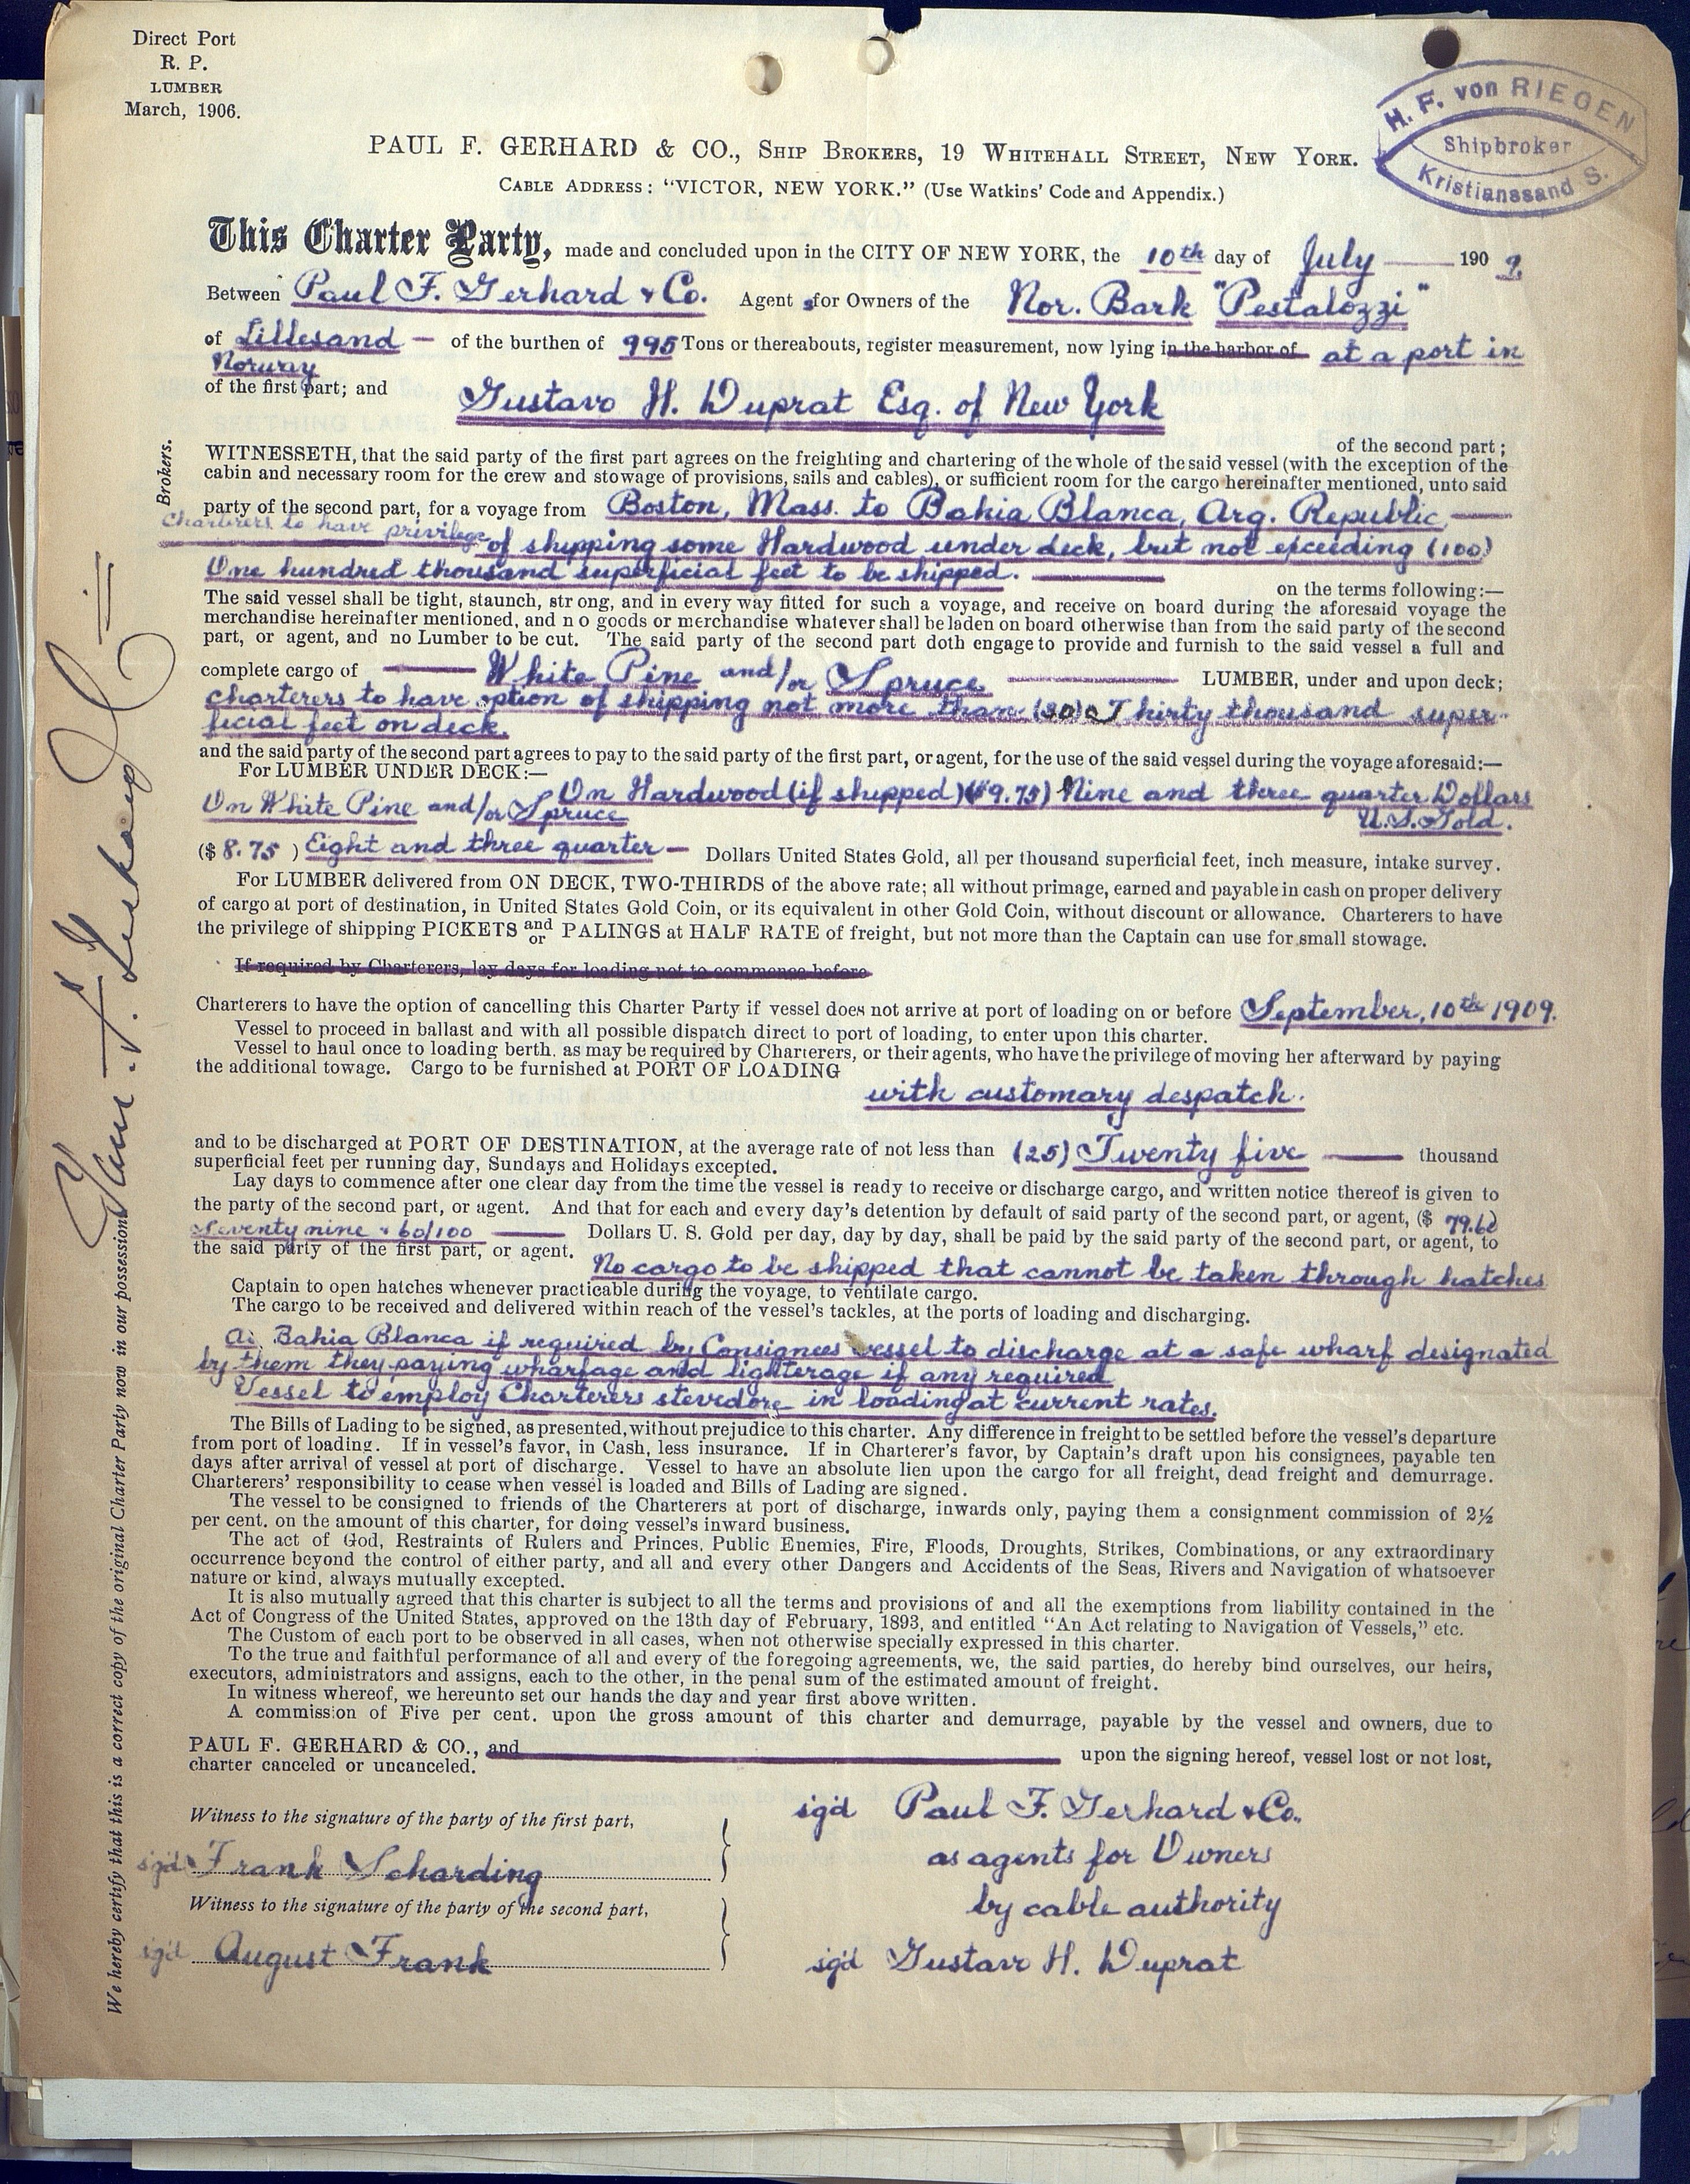 Direct Port
R. P.
LUMBER
March, 1906.
H. F. von RIEGEN
Shipbroker
Kristianssand S.
PAUL F. GERHARD & CO., SHIP BROKERS, 19 WHITEHALL STREET, NEW YORK.
CABLE ADDRESS: "VICTOR, NEW YORK." (Use Watkins' Code and Appendix.)
This Charter Party, made and concluded upon in the CITY OF NEW YORK, the 10th day of July 1909.
Between Paul F. Gerhard & Co. Agents for Owners of the Nor. Bark "Pestalozzi"
of Lillesand — of the burthen of 995 Tons or thereabouts, register measurement, now lying in the harbor of at a port in
Norway
of the first part; and Gustavo H. Duprat Esq. of New York
of the second part;
WITNESSETH, that the said party of the first part agrees on the freighting and chartering of the whole of the said vessel (with the exception of the
cabin and necessary room for the crew and stowage of provisions, sails and cables), or sufficient room for the cargo hereinafter mentioned, unto said
party of the second part, for a voyage from Boston, Mass. to Bahia Blanca, Arg. Republic —
Charterers to have privilege of shipping some Hardwood under deck, but not exceeding (100)
One hundred thousand superficial feet to be shipped. —
on the terms following:—
The said vessel shall be tight, staunch, strong, and in every way fitted for such a voyage, and receive on board during the aforesaid voyage the
merchandise hereinafter mentioned, and no goods or merchandise whatever shall be laden on board otherwise than from the said party of the second
part, or agent, and no Lumber to be cut. The said party of the second part doth engage to provide and furnish to the said vessel a full and
complete cargo of — White Pine and/or Spruce — LUMBER, under and upon deck;
Charterers to have option of shipping not more than (30) Thirty thousand super-
ficial feet on deck.
and the said party of the second part agrees to pay to the said party of the first part, or agent, for the use of the said vessel during the voyage aforesaid:—
For LUMBER UNDER DECK:—
On Hardwood (if shipped) ($9.75) Nine and three quarter Dollars
On White Pine and/or Spruce U.S. Gold.
($ 8.75 ) Eight and three quarter — Dollars United States Gold, all per thousand superficial feet, inch measure, intake survey.
For LUMBER delivered from ON DECK, TWO-THIRDS of the above rate; all without primage, earned and payable in cash on proper delivery
of cargo at port of destination, in United States Gold Coin, or its equivalent in other Gold Coin, without discount or allowance. Charterers to have
the privilege of shipping PICKETS and/or PALINGS at HALF RATE of freight, but not more than the Captain can use for small stowage.
If required by Charterers, lay days for loading not to commence before
Charterers to have the option of cancelling this Charter Party if vessel does not arrive at port of loading on or before September, 10th 1909.
Vessel to proceed in ballast and with all possible dispatch direct to port of loading, to enter upon this charter.
Vessel to haul once to loading berth, as may be required by Charterers, or their agents, who have the privilege of moving her afterward by paying
the additional towage. Cargo to be furnished at PORT OF LOADING
with customary despatch.
and to be discharged at PORT OF DESTINATION, at the average rate of not less than (25) Twenty five — thousand
superficial feet per running day, Sundays and Holidays excepted.
Lay days to commence after one clear day from the time the vessel is ready to receive or discharge cargo, and written notice thereof is given to
the party of the second part, or agent. And that for each and every day's detention by default of said party of the second part, or agent, ($ 79.60)
Seventy nine & 60/100 — Dollars U. S. Gold per day, day by day, shall be paid by the said party of the second part, or agent, to
the said party of the first part, or agent.
No cargo to be shipped that cannot be taken through hatches
Captain to open hatches whenever practicable during the voyage, to ventilate cargo.
The cargo to be received and delivered within reach of the vessel's tackles, at the ports of loading and discharging.
At Bahia Blanca if required by Consignees vessel to discharge at a safe wharf designated
by them they paying wharfage and lighterage if any required
Vessel to employ Charterers stevedore in loading at current rates.
The Bills of Lading to be signed, as presented, without prejudice to this charter. Any difference in freight to be settled before the vessel's departure
from port of loading. If in vessel's favor, in Cash, less insurance. If in Charterer's favor, by Captain's draft upon his consignees, payable ten
days after arrival of vessel at port of discharge. Vessel to have an absolute lien upon the cargo for all freight, dead freight and demurrage.
Charterers' responsibility to cease when vessel is loaded and Bills of Lading are signed.
The vessel to be consigned to friends of the Charterers at port of discharge, inwards only, paying them a consignment commission of 2½
per cent. on the amount of this charter, for doing vessel's inward business.
The act of God, Restraints of Rulers and Princes, Public Enemies, Fire, Floods, Droughts, Strikes, Combinations, or any extraordinary
occurrence beyond the control of either party, and all and every other Dangers and Accidents of the Seas, Rivers and Navigation of whatsoever
nature or kind, always mutually excepted.
It is also mutually agreed that this charter is subject to all the terms and provisions of and all the exemptions from liability contained in the
Act of Congress of the United States, approved on the 13th day of February, 1893, and entitled "An Act relating to Navigation of Vessels," etc.
The Custom of each port to be observed in all cases, when not otherwise specially expressed in this charter.
To the true and faithful performance of all and every of the foregoing agreements, we, the said parties, do hereby bind ourselves, our heirs,
executors, administrators and assigns, each to the other, in the penal sum of the estimated amount of freight.
In witness whereof, we hereunto set our hands the day and year first above written.
A commission of Five per cent. upon the gross amount of this charter and demurrage, payable by the vessel and owners, due to
PAUL F. GERHARD & CO., and upon the signing hereof, vessel lost or not lost,
charter canceled or uncanceled.
Witness to the signature of the party of the first part,
sgd Frank Scharding
Witness to the signature of the party of the second part,
sgd August Frank
sgd Paul F. Gerhard & Co.
as agents for Owners
by cable authority
sgd Gustavo H. Duprat
We hereby certify that this is a correct copy of the original Charter Party now in our possession.
Paul F. Gerhard & Co
Brokers.